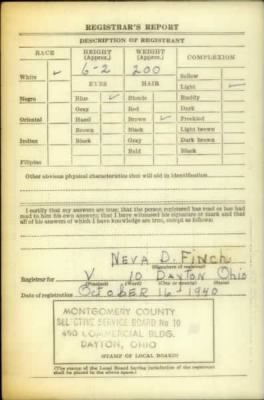 REGISTRAR'S REPORT
DESCRIPTION OF REGISTRANT
RACE HEIGHT (Approx.) WEIGHT (Approx.) COMPLEXION
6-2 200
White ✓ EYES HAIR Sallow
Light ✓
Negro Blue ✓ Blonde Ruddy
Gray Red Dark
Oriental Hazel Brown ✓ Freckled
Brown Black Light brown
Indian Black Gray Dark brown
Bald Black
Filipino
Other obvious physical characteristics that will aid in identification
I certify that my answers are true; that the person registered has read or has had
read to him his own answers; that I have witnessed his signature or mark and that
all of his answers of which I have knowledge are true, except as follows:
Neva D. Finch
(Signature of registrar)
Registrar for V 10 Dayton Ohio
(Precinct) (Ward) (City or county) (State)
Date of registration October 16-1940
MONTGOMERY COUNTY
SELECTIVE SERVICE BOARD No 10
COMMERCIAL BLDG.
DAYTON, OHIO
(STAMP OF LOCAL BOARD)
(The stamp of the Local Board having jurisdiction of the registrant
shall be placed in the above space.)